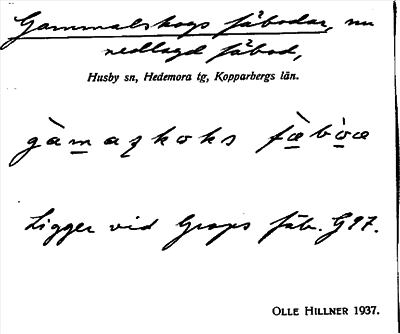 Gammalskogs fäbodar, nu
nedlagd fäbod,
Husby sn, Hedemora tg, Kopparbergs län.
Ligger vid Grops fäb. G 97.
OLLE HILLNER 1937.